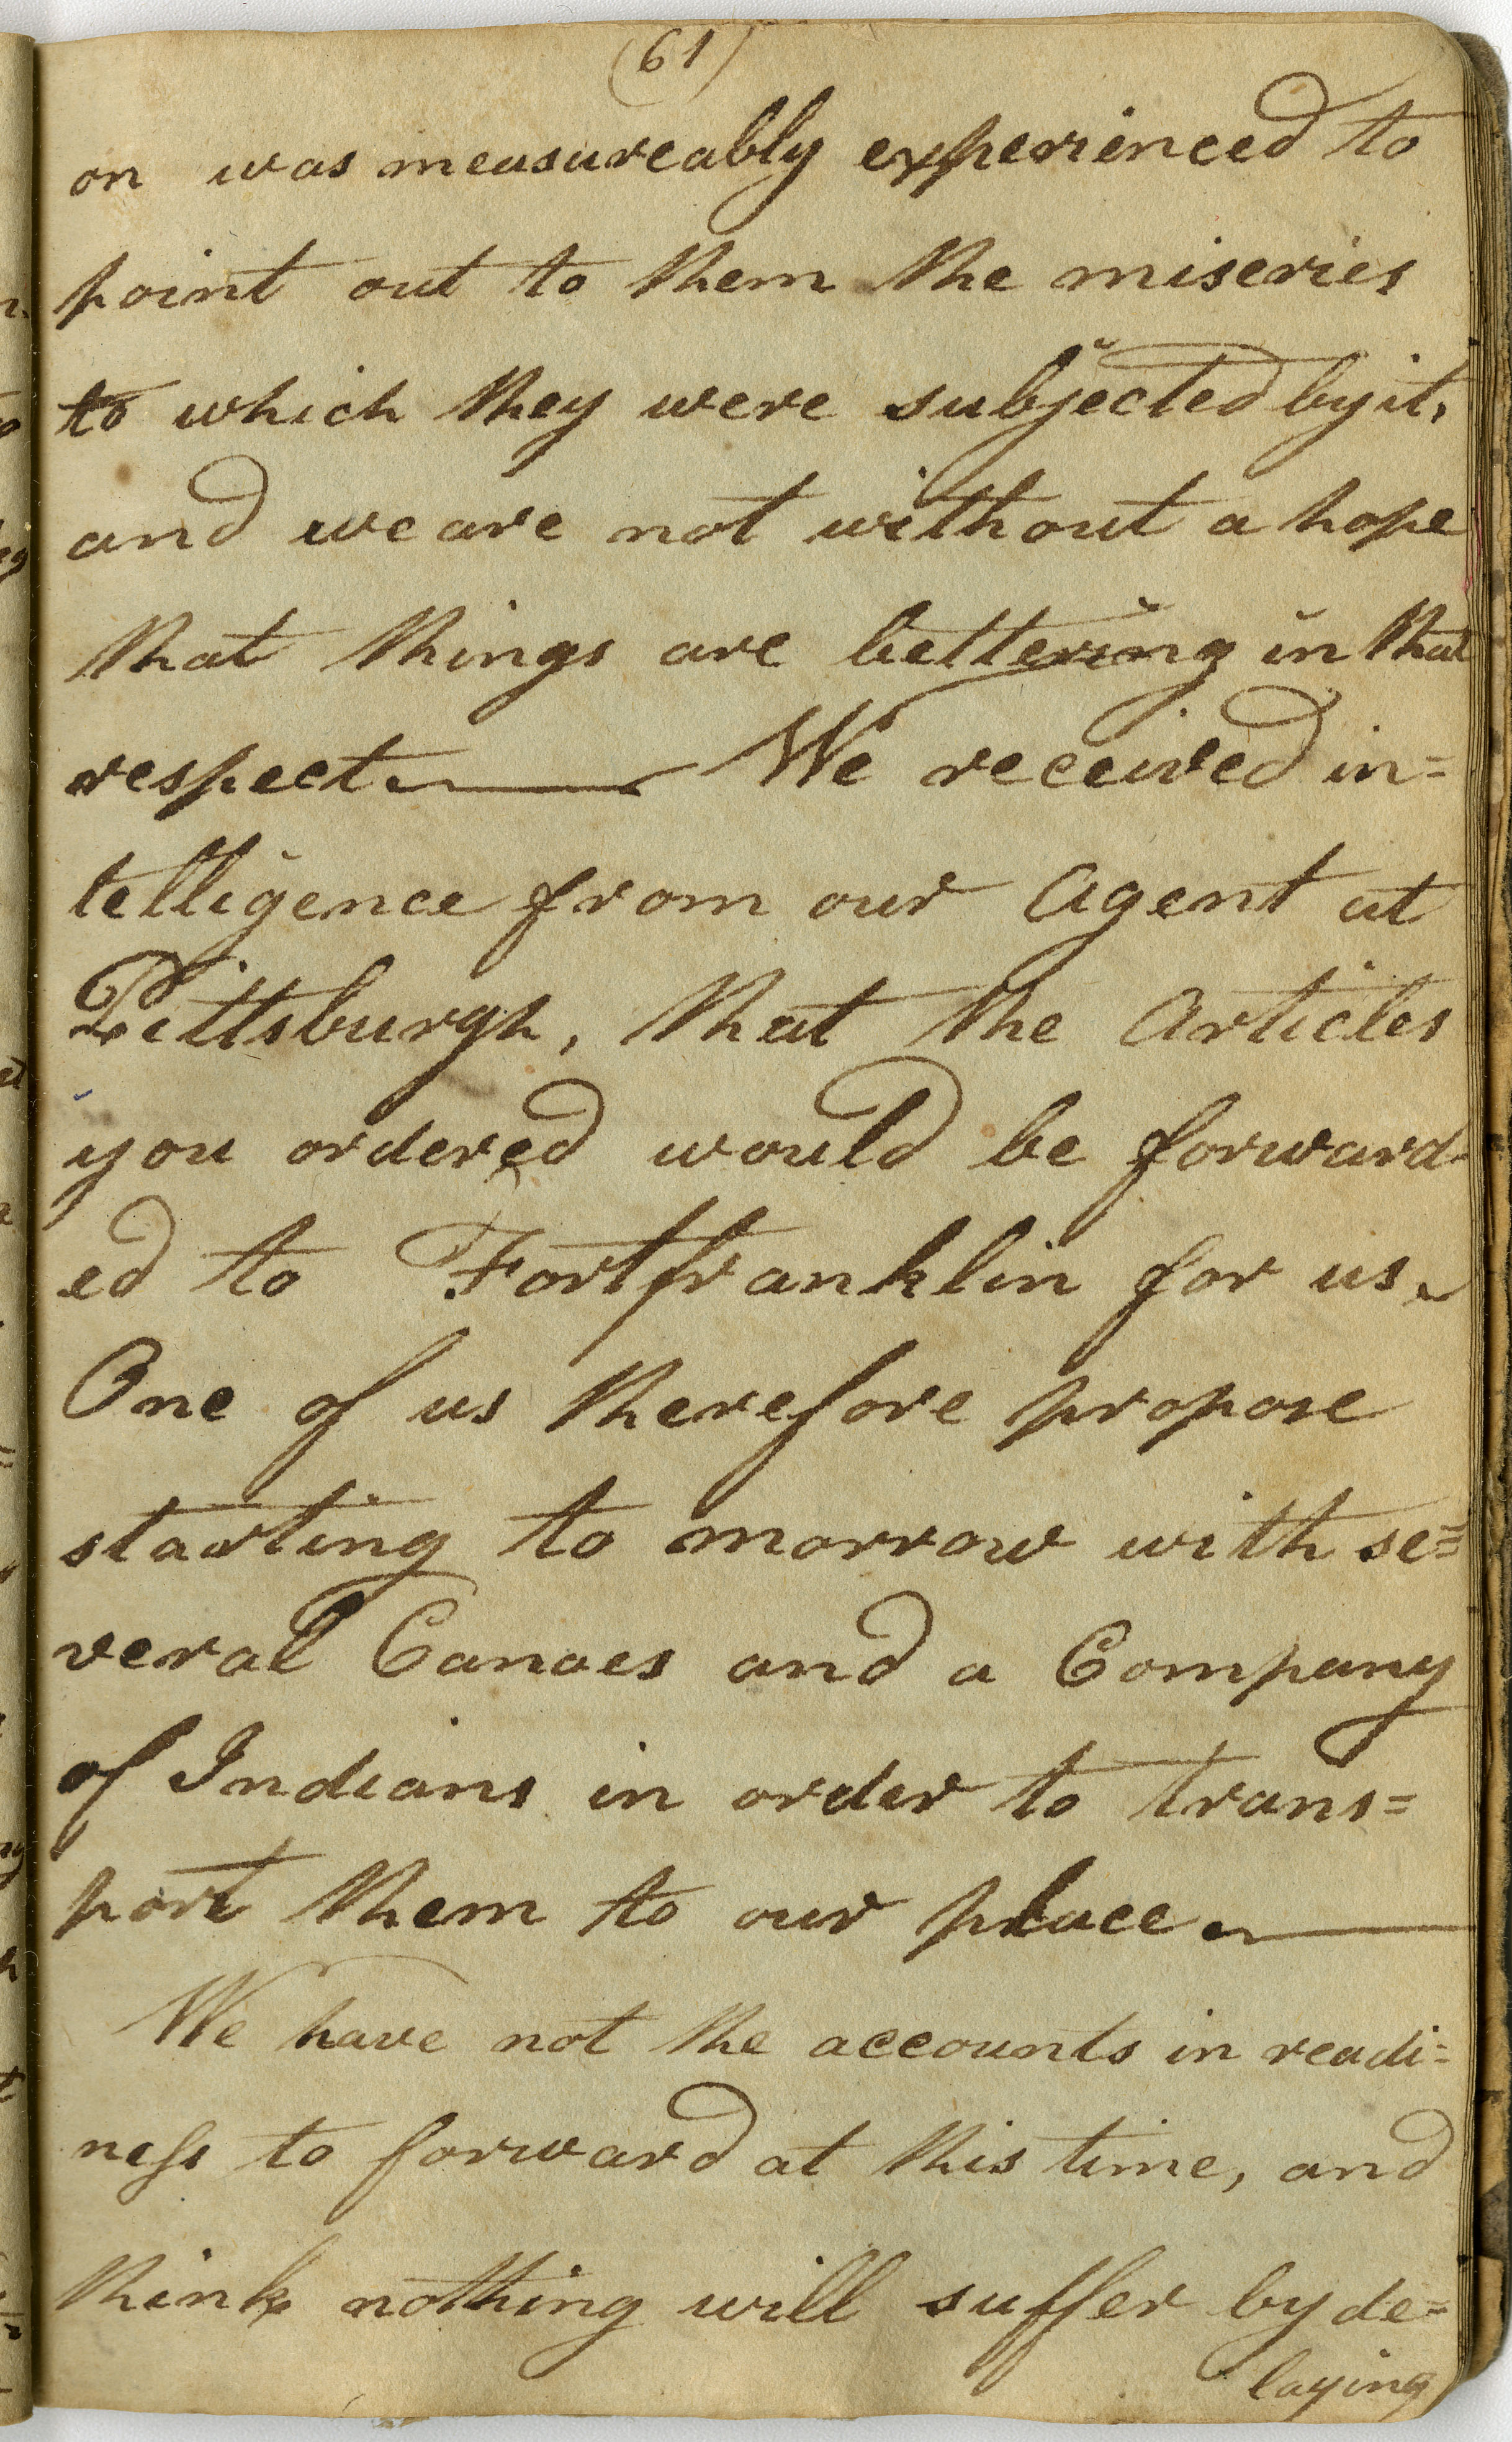 (61)
on was measureably experienced to
point out to them the miseries
to which they were subjected by it,
and we are not without a hope
that things are bettering in that
respect. We received in=
telligence from our Agent at
Pittsburgh, that the Articles
you ordered would be forward-
ed to Fortfranklin for us.
One of us therefore propose
starting to morrow with se=
veral Canoes and a Company
of Indians in order to trans=
port them to our place.
We have not the accounts in readi=
neſs to forward at this time, and
think nothing will suffer by de=
laying